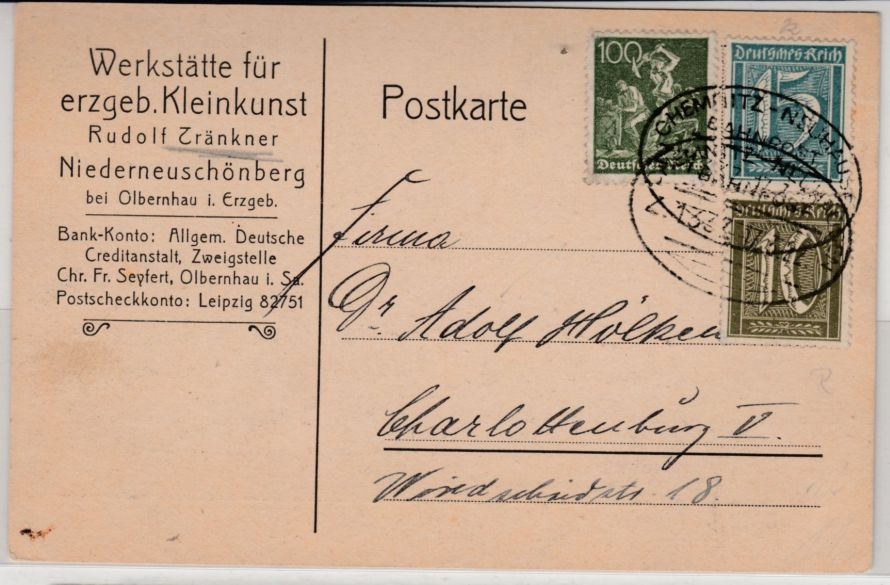 Werkstätte für
erzgeb. Kleinkunst
Rudolf Tränkner
Niederneuschönberg
bei Olbernhau i. Erzgeb.
Bank-Konto: Allgem. Deutsche
Creditanstalt, Zweigstelle
Chr. Fr. Seyfert, Olbernhau i. Sa.
Postscheckkonto: Leipzig 82751
Postkarte
100
Deutsches Reich
Deutsches Reich
15
Deutsches Reich
10
CHEMNITZ-NEUHAUSEN
BAHNPOST
Firma
Dr. Adolf Hölken
Charlottenburg V.
Windscheidstr. 18.